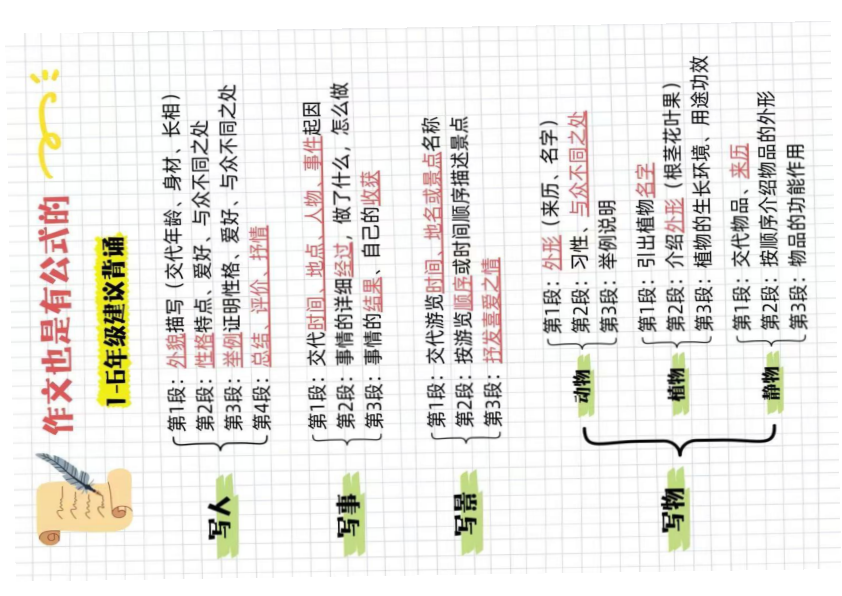 作文也是有公式的
1-6年级建议背诵
写人
第1段：外貌描写（交代年龄、身材、长相）
第2段：性格特点、爱好、与众不同之处
第3段：举例证明性格、爱好、与众不同之处
第4段：总结、评价、抒情
写事
第1段：交代时间、地点、人物、事件起因
第2段：事情的详细经过，做了什么，怎么做
第3段：事情的结果、自己的收获
写景
第1段：交代游览时间、地名或景点名称
第2段：按游览顺序或时间顺序描述景点
第3段：抒发喜爱之情
写物
动物
第1段：外形（来历、名字）
第2段：习性、与众不同之处
第3段：举例说明
植物
第1段：引出植物名字
第2段：介绍外形（根茎花叶果）
第3段：植物的生长环境、用途功效
静物
第1段：交代物品、来历
第2段：按顺序介绍物品的外形
第3段：物品的功能作用